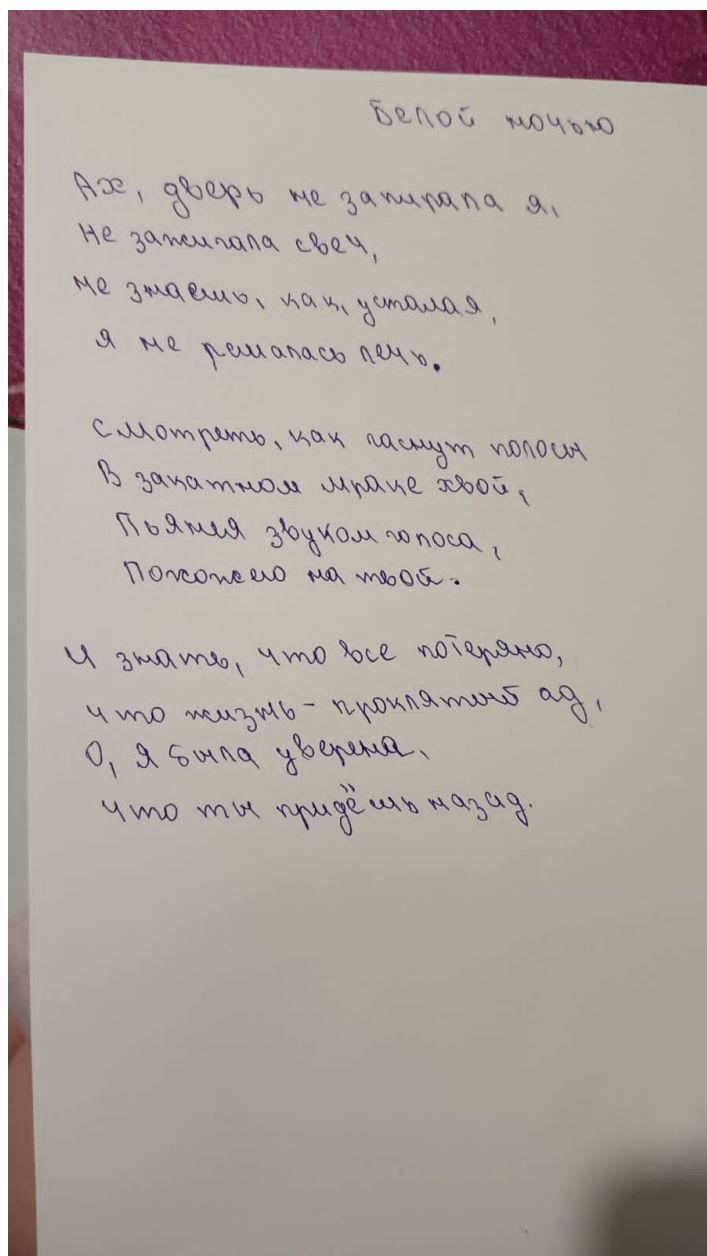 Белой ночью
Ах, дверь не запирала я,
не зажигала свеч,
не знаешь, как, усталая,
я не решалась лечь.
Смотреть, как гаснут полосы
В закатном мраке хвой,
Пьянея звуком голоса,
Похожего на твой.
И знать, что все потеряно,
что жизнь - проклятый ад,
О, я была уверена,
что ты придёшь назад.